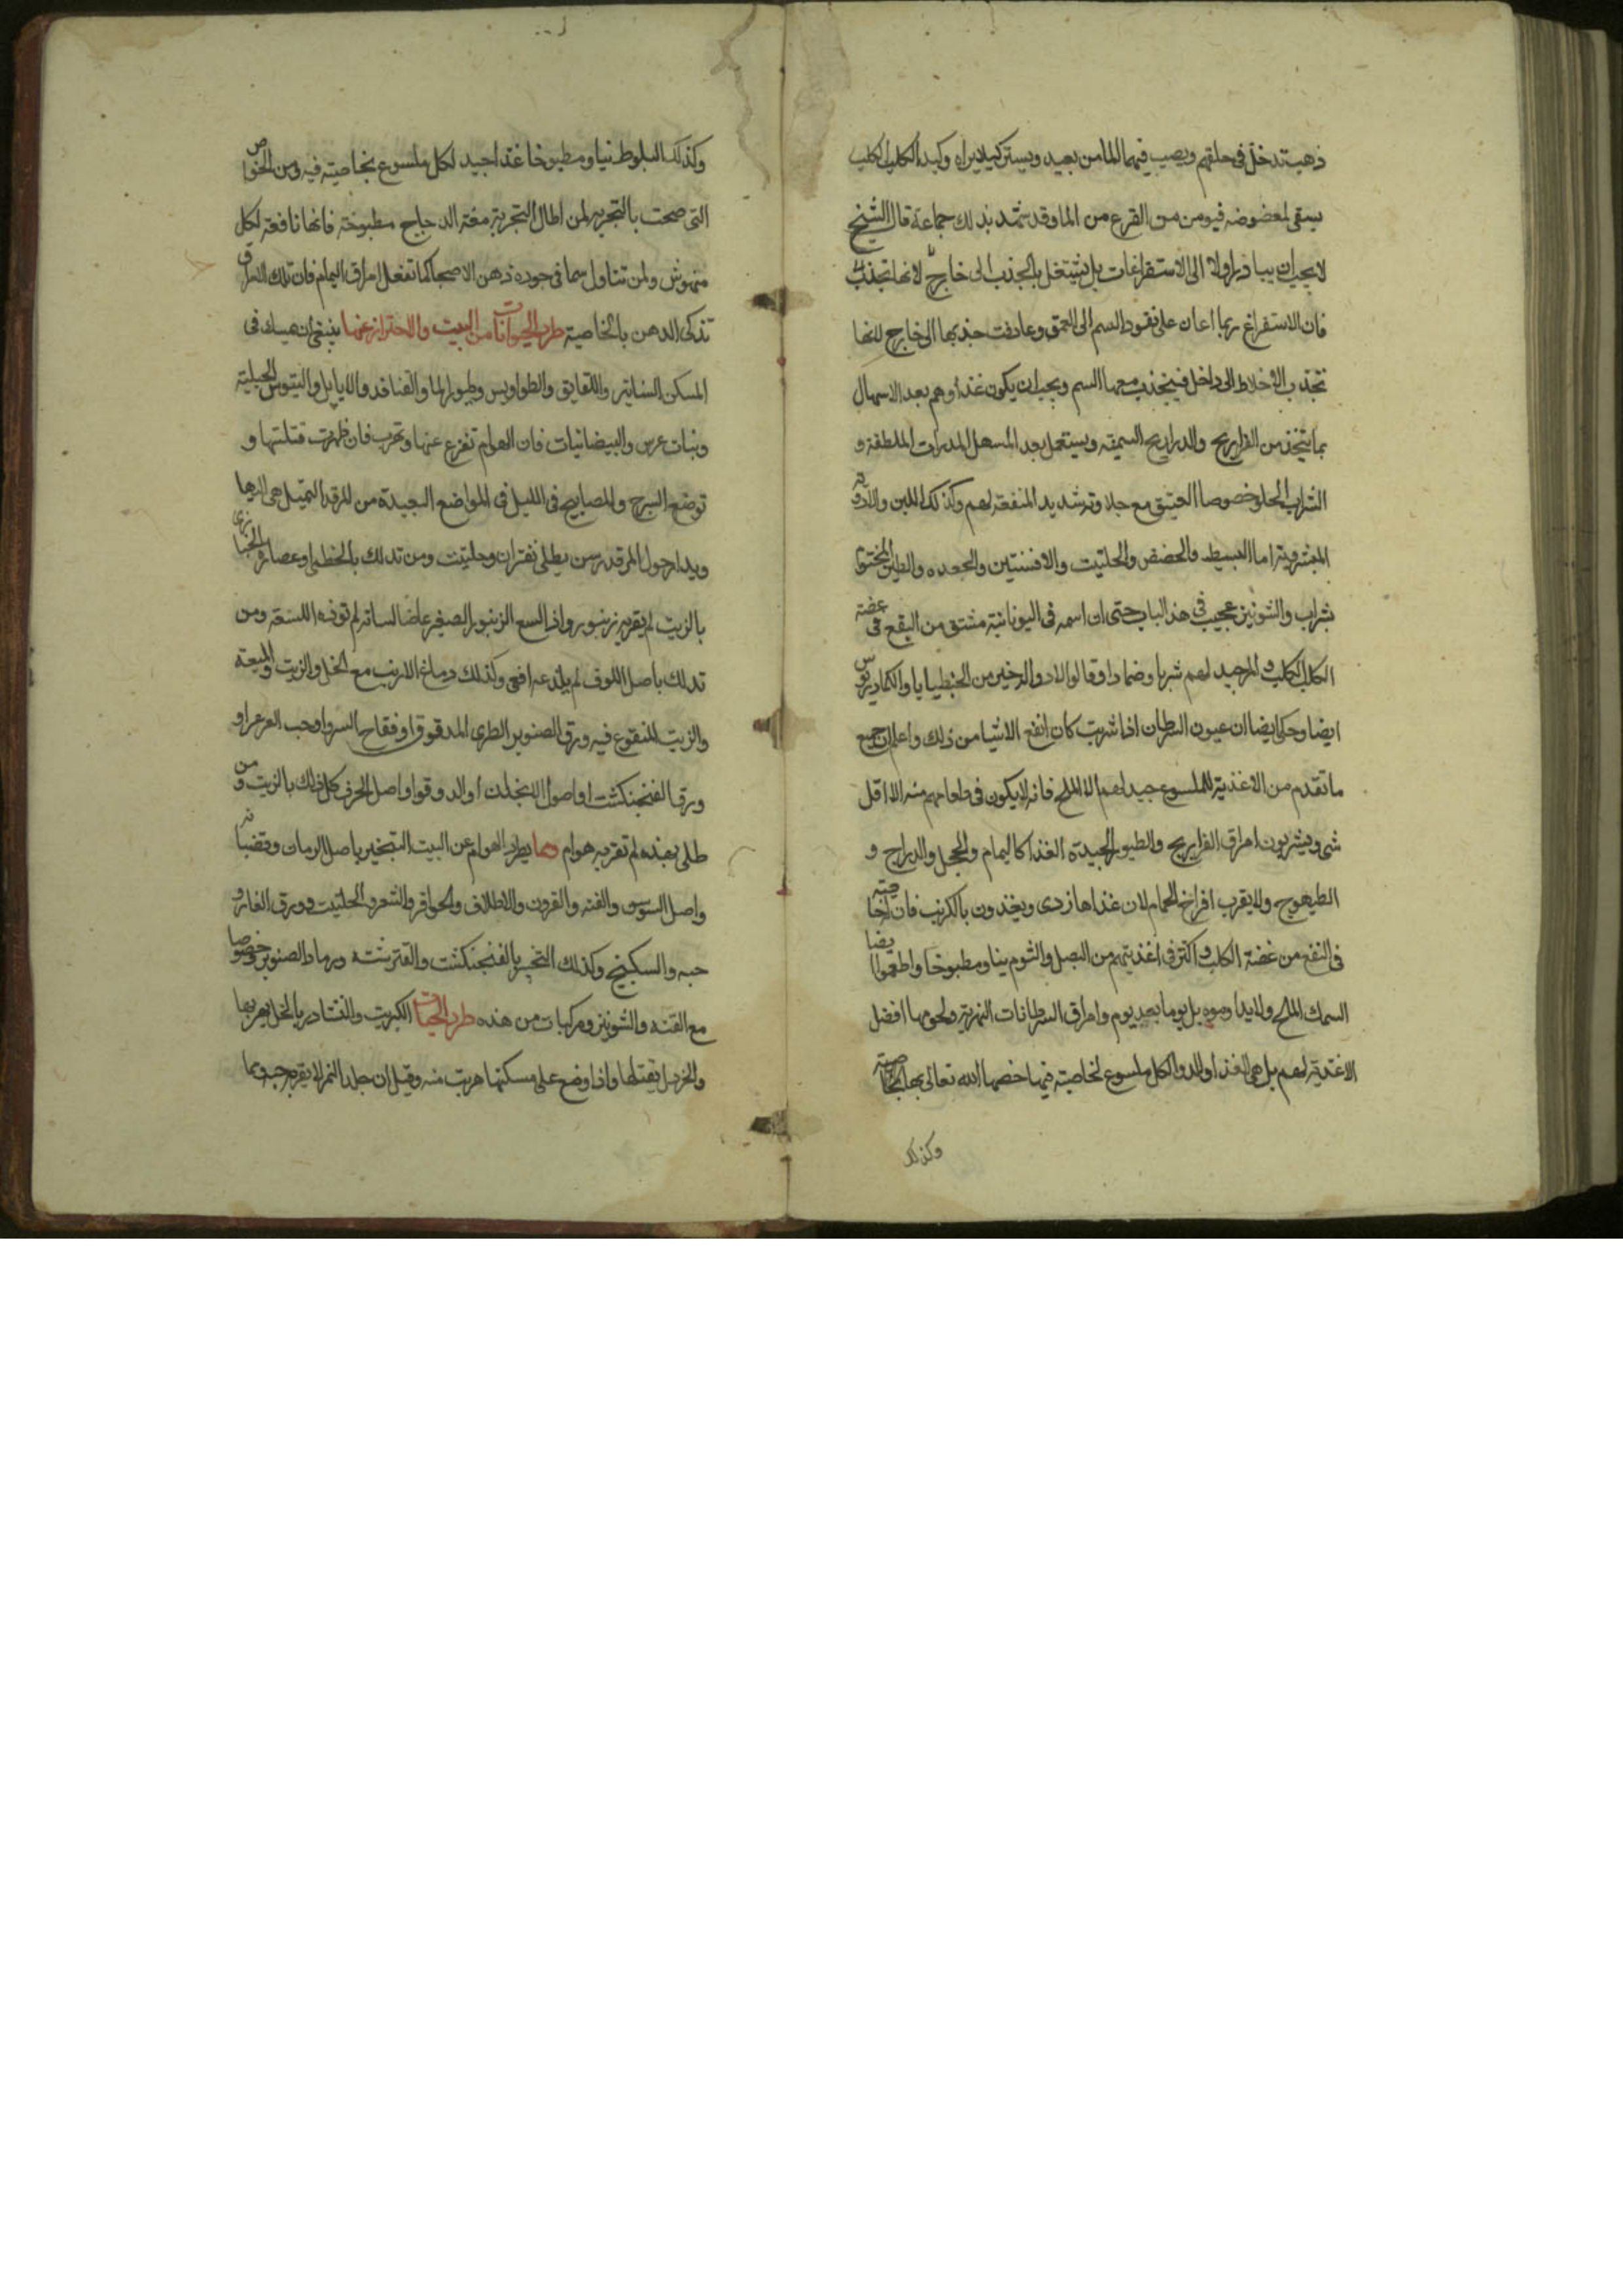 ذهب تدخل فى حلقهم ويصب فيها الما من بعيد ويستر كيلا يراه وكبد الكلب الكلب
يسقى لمعضوضه فيومن من الفزع من الما وقد شهد بذلك جماعة قال الشيخ
لا يجب ان يبادر اولا الى الاستفراغات بل يشتغل بالجذب الى خارج لانها تجذب
فان الاستفراغ ربما اعان على نفوذ السم الى العمق وعاوقت جذبها الى خارج لانها
تجذب الاخلاط الى داخل فينجذب معها السم ويجب ان يكون غذاوهم بعد الاسهال
بما يتخذ من الفراريج والدراريج السمينه ويستعمل بعد المسهل المدرات الملطفة و
الشراب الحلو خصوصا العتيق مع جلاوته شديد المنفعة لهم وكذلك اللبن والادوية
المفشرويترا ما البسيط والحضض والحلتيت والافسنتين والجعده والطين المختوم
بشراب والشونيز عجيب فى هذا الباب حتى ان اسمه فى اليونانية مشتق من النفع فى عضة
الكلب الكلب والمر جيد لهم شربا وضمادا وقالوا لا دوا لذخير من الجنطيايا والكمادريوس
ايضا وحكى ايضا ان عيون السرطان اذا شربت كان انفع الاشيا من ذلك واعلم ان جميع
ما تقدم من الاغذية للملسوع جيد لهم الا الملح فانه لا يكون فى طعامهم منه الا اقل
شى ويشربون امراق الفراريج والطيور الجيدة الغذا كاليمام والحجل والدراج و
الطيهوج ولا يقرب افراخ الحمام لان غذاها ردى ويغذون بالكرنب فان له خاصية
فى النفع من عضة الكلب واكثر فى اغذيتهم من البصل والثوم نيا ومطبوخا واطعموا ايضا
السمك الملح ولا يداوموه بل يوما بعد يوم وامراق السرطانات النهرية ولحومها افضل
الاغذية لهم بل هى الغذا والدوا لكل ملسوع لخاصية فيها خصها الله تعالى بها بخاصية
وكذلك
وكذلك البلوط نيا ومطبوخا غذا جيد لكل ملسوع بخاصية فيه ومن الخواص
التى صحت بالتجربه لمن اطال التجربة مغة الدجاج مطبوخة فانها نافعة لكل
منهوش ولمن تناول سما فى جوده ذهن الاصحا كما تفعل امراق اليمام فان تلك المراق
تذكى الذهن بالخاصية طرد الحيوانات من البيت والاحتراز عنها ينبغى ان يمسك فى
المسكن السنانير واللقالق والطواويس وطيور الما والقنافد والايايل والتيوس الجبلية
وبنات عرس والبيضانيات فان الهوام تفزع عنها وتهرب فان ظهرت قتلتها و
توضع السرج والمصابيح فى الليل فى المواضع البعيدة من المرقد التميل هى اليها
ويدار حول المرقد رسن يطلى بقطران وحلتيت ومن تدلك بالخطمى او عصارة الخبازى
بالزيت لم يقربه زنبور واذا لسع الزنبور الصغير عاضا لسانه لم توذه اللسعة ومن
تدلك باصل اللوف لم يلدغه افعى وكذلك دماغ الارنب مع الخل والزيت والميعة
والزيت المنقوع فيه ورق الصنوبر الطرى المدقوق او فقاح السرو او حب العرعر او
ورق الفنجنكشت او اصول الانجدان او الدوقوا واصل الحزف كل ذلك بالزيت ومن
طلى بهذه لم تقربه هوام ومما يطرد الهوام عن البيت التبخير باصل الرمان وقضبانه
واصل السوسن والقنه والقرون والاظلاف والحوافر والشعر والحلتيت وورق الغار و
حبه والسكبينج وكذلك التبخير بالفنجنكشت والقترنشته ورماد الصنوبر وخصوصا
مع القنه والشونيز ومركبات من هذه طرد الحيات الكبريت والنشادر بالخل يهربها
والخردل يقتلها واذا وضع على مسكنها هربت منه وقيل ان جلد النمر لا يقربه حية وبما